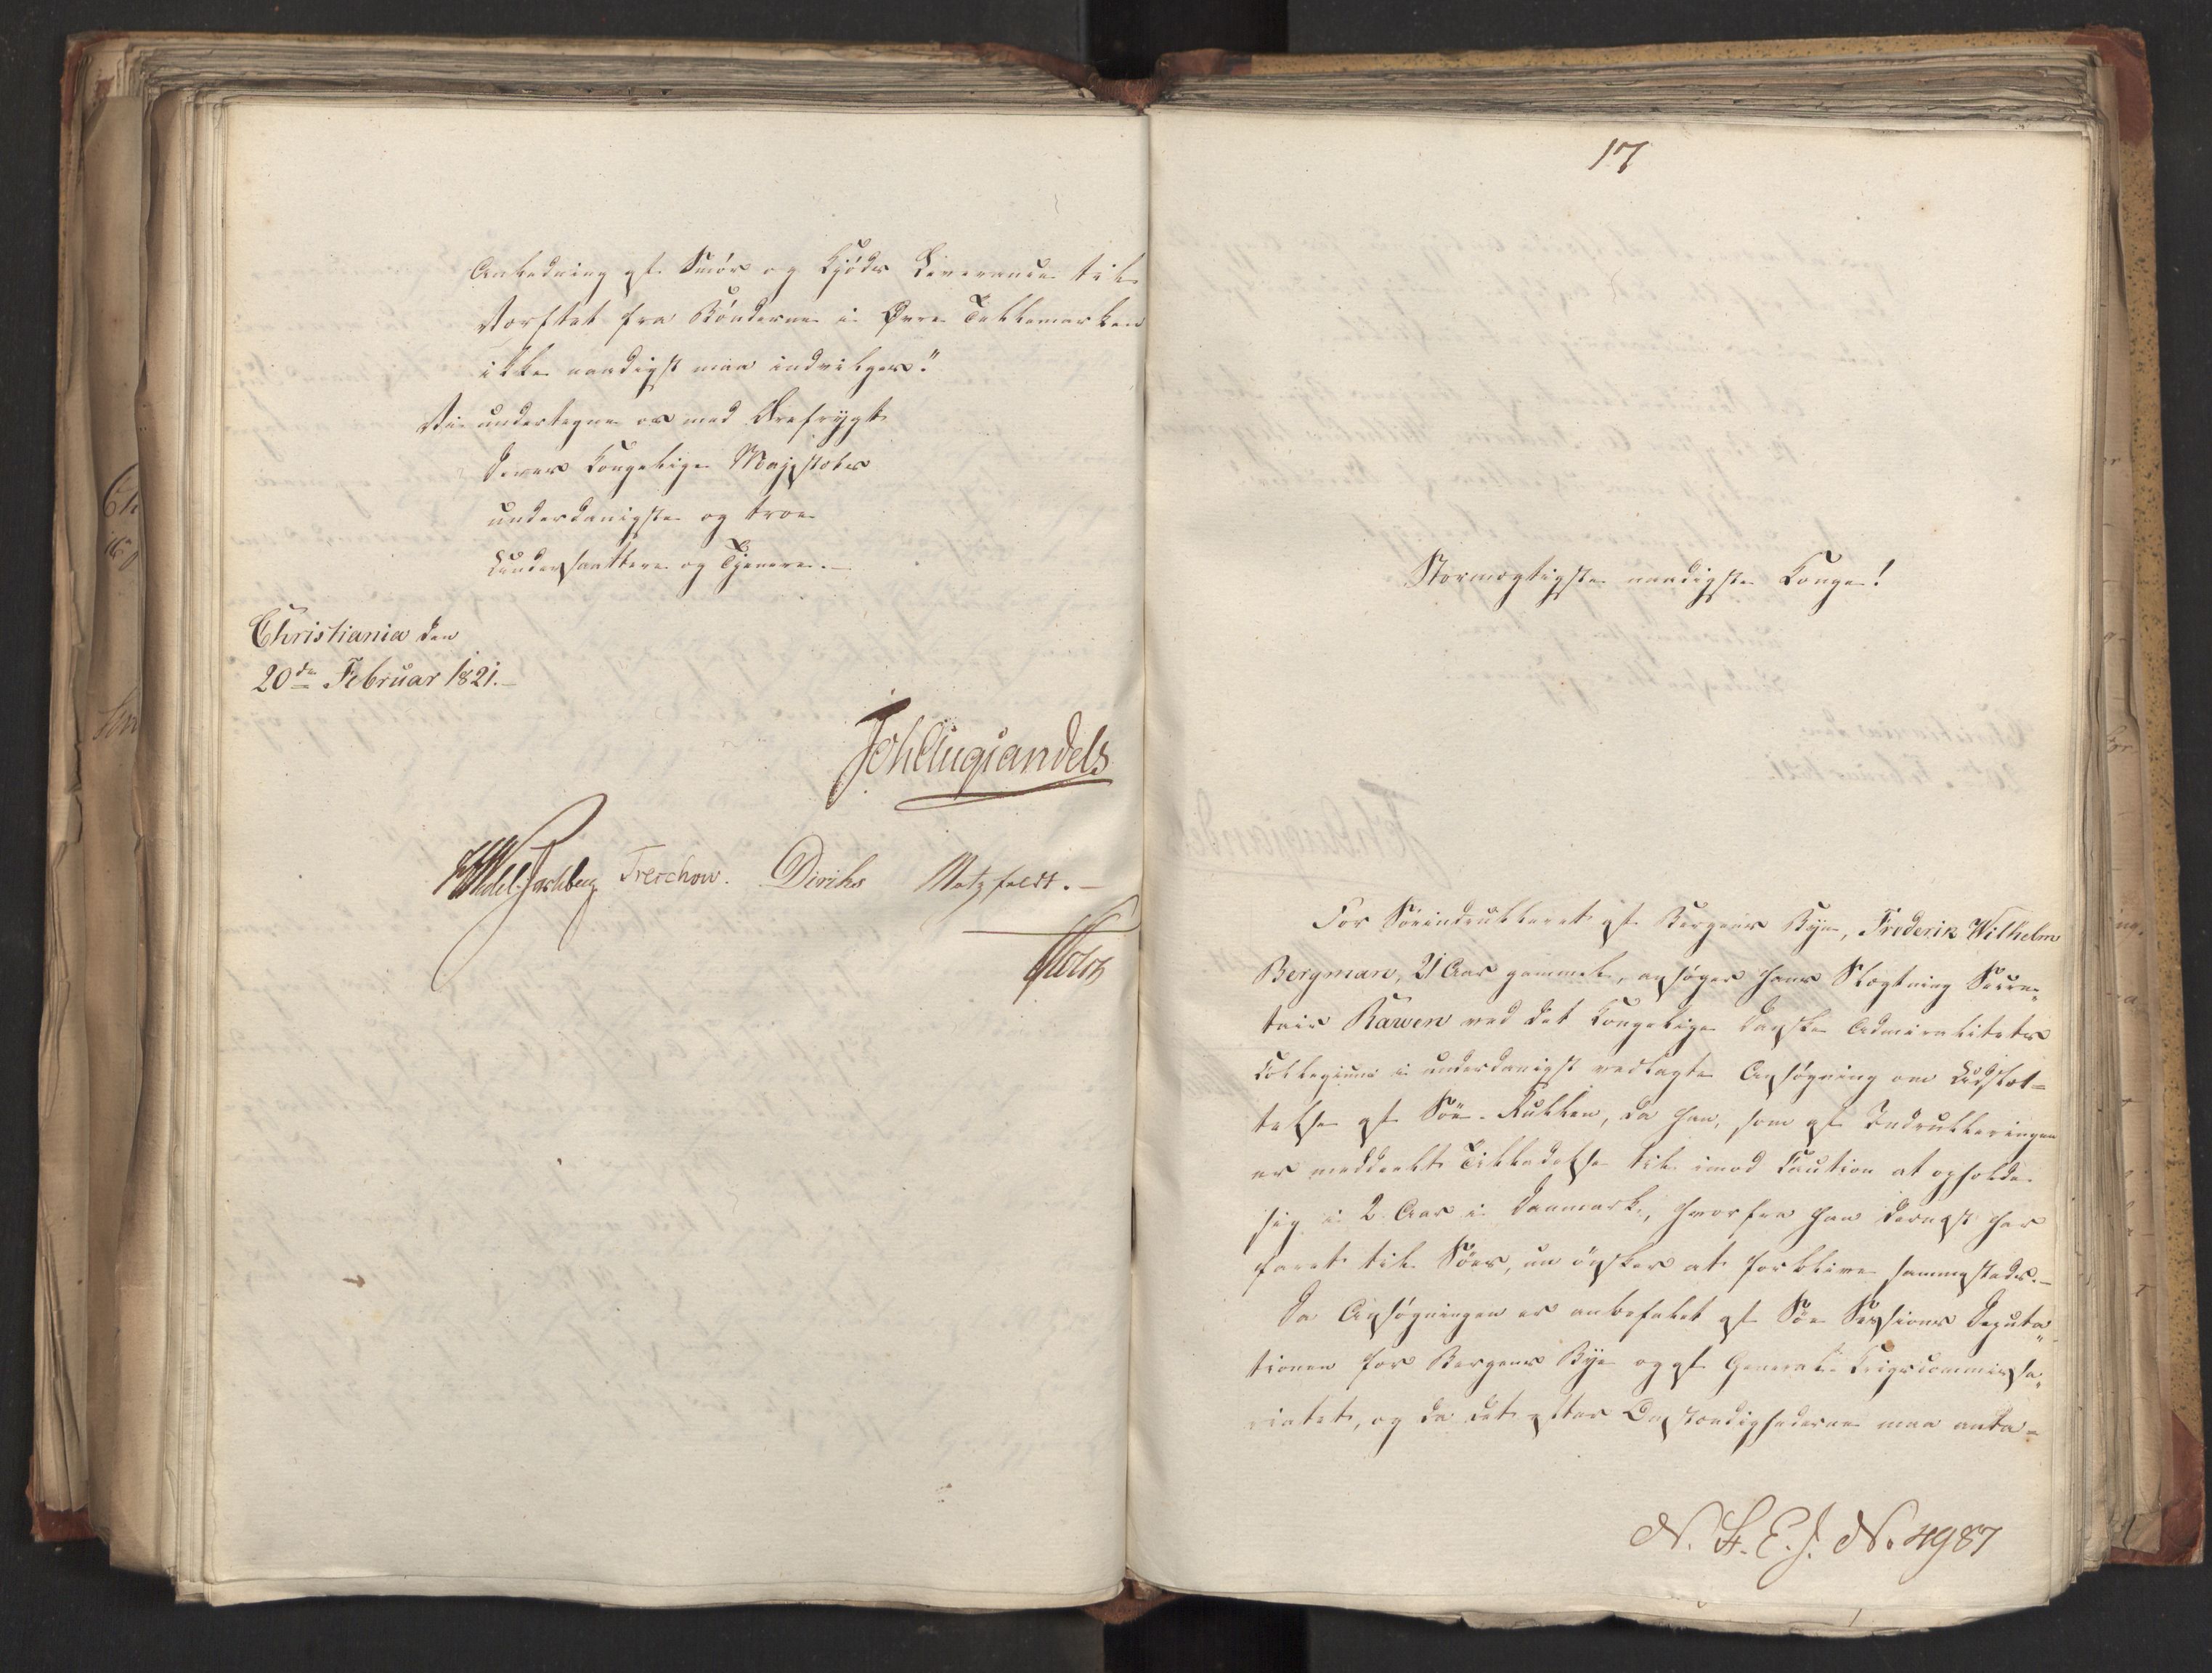 Anledning af Smör og Kjöds Leverance til
Værftet fra Bönderne i Övre Tellemarken
ikke naadigst maa indvilges."
Vi undertegne os med Ærefrygt
Deres Kongelige Majestæts
underdanigste og troe
Undersaattere og Tjenere.—
Christiania den
20de Februar 1821.—
JohAugSandels
Treschow. Diriks Motzfeldt.—
Holst
17
Stormægtigste naadigste Konge!
For Söeindrulleret af Bergens Bye, Frederik Wilhelm
Bergman, 21 Aar gammel, ansöger hans Slægtning Secre„
tair Rawen ved det Kongelige danske Admiralitets
Collegium i underdanigst vedlagte Ansögning om Udslet=
telse af Söe-Rullen, da han, som af Indrulleringen
er meddeelt Tilladelse til imod Caution at opholde
sig i 2 Aar i Danmark, hvorfra han dernæst har
faret til Söes, nu önsker at forblive sammesteds.—
Da Ansögningen er anbefalet af Söe Sessions Deputa„
tionen for Bergens Bye og af General Krigscommissa„
riatet, og da det efter Omstændighederne maa anta=
N. F. E. J. No. 4987